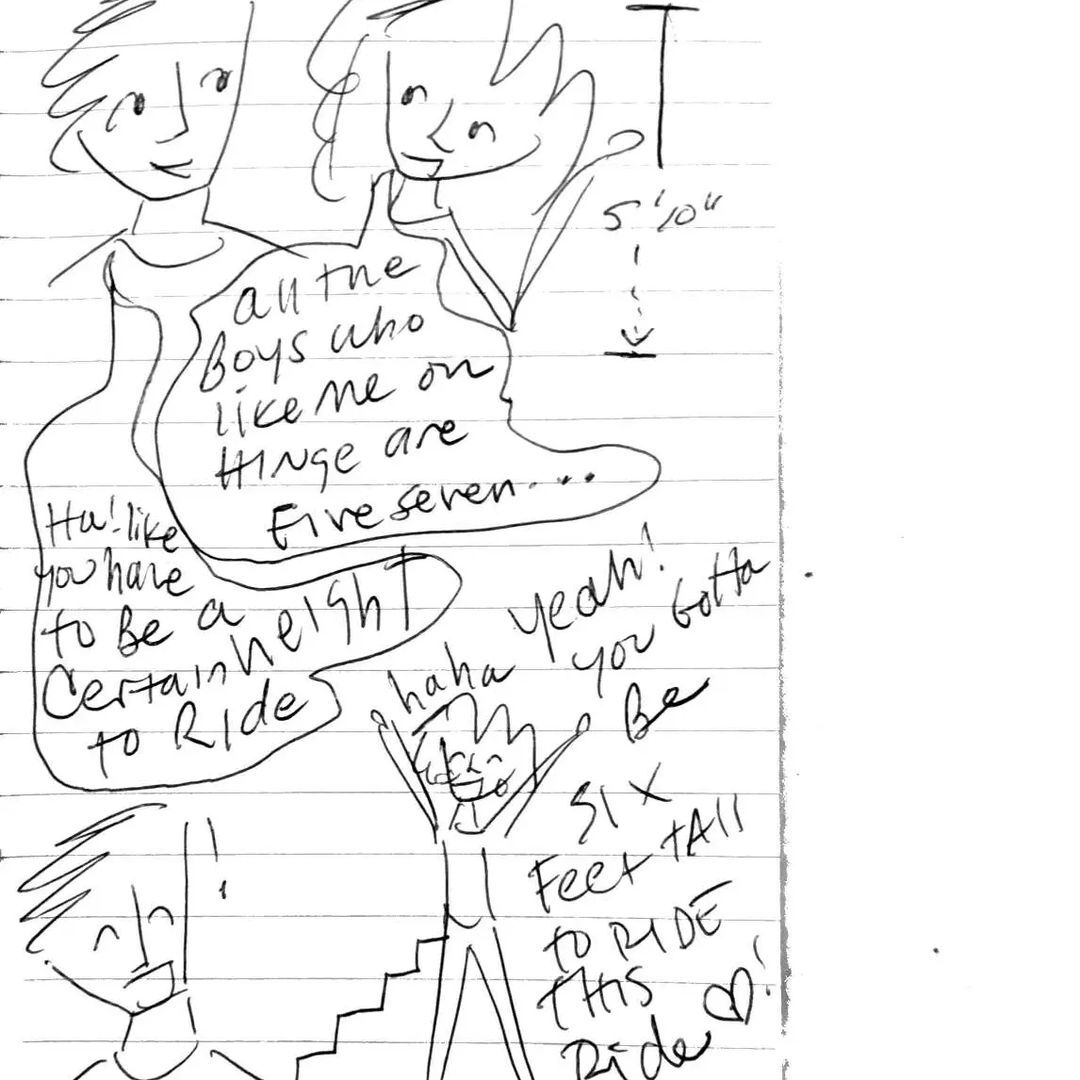 5'10"
all the
Boys who
like me on
HINGE are
Five seven...
Ha! like
you have
to Be a
Certain height
to RIde
haha yeah!
you Gotta
Be
SIX
Feet tAll
to RIDE
THIS
Ride ♡!